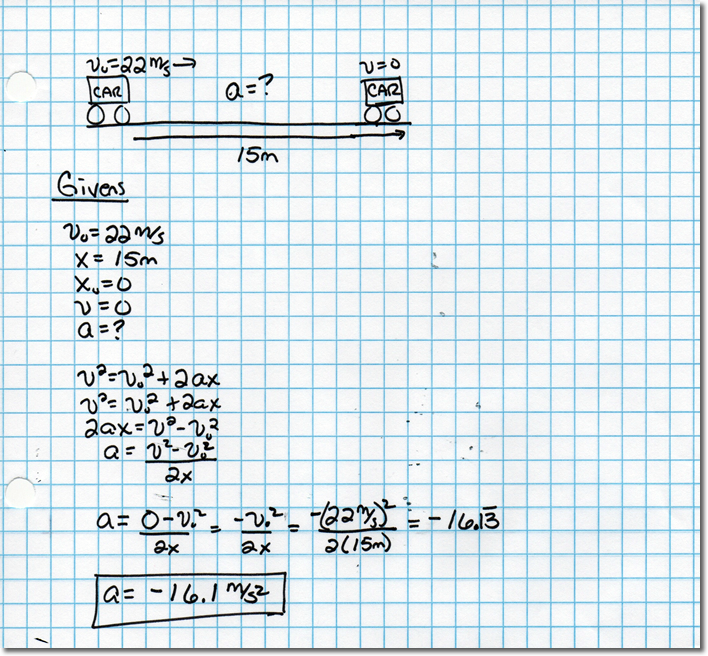 v₀=22 m/s → v=0
CAR a=? CAR
15m
Givens
v₀=22 m/s
x=15m
x₀=0
v=0
a=?
v²=v₀²+2ax
v²=v₀²+2ax
2ax=v²-v₀²
a= v²-v₀² / 2x
a= 0-v₀² / 2x = -v₀² / 2x = -(22 m/s)² / 2(15m) = -16.13̅
a= -16.1 m/s²